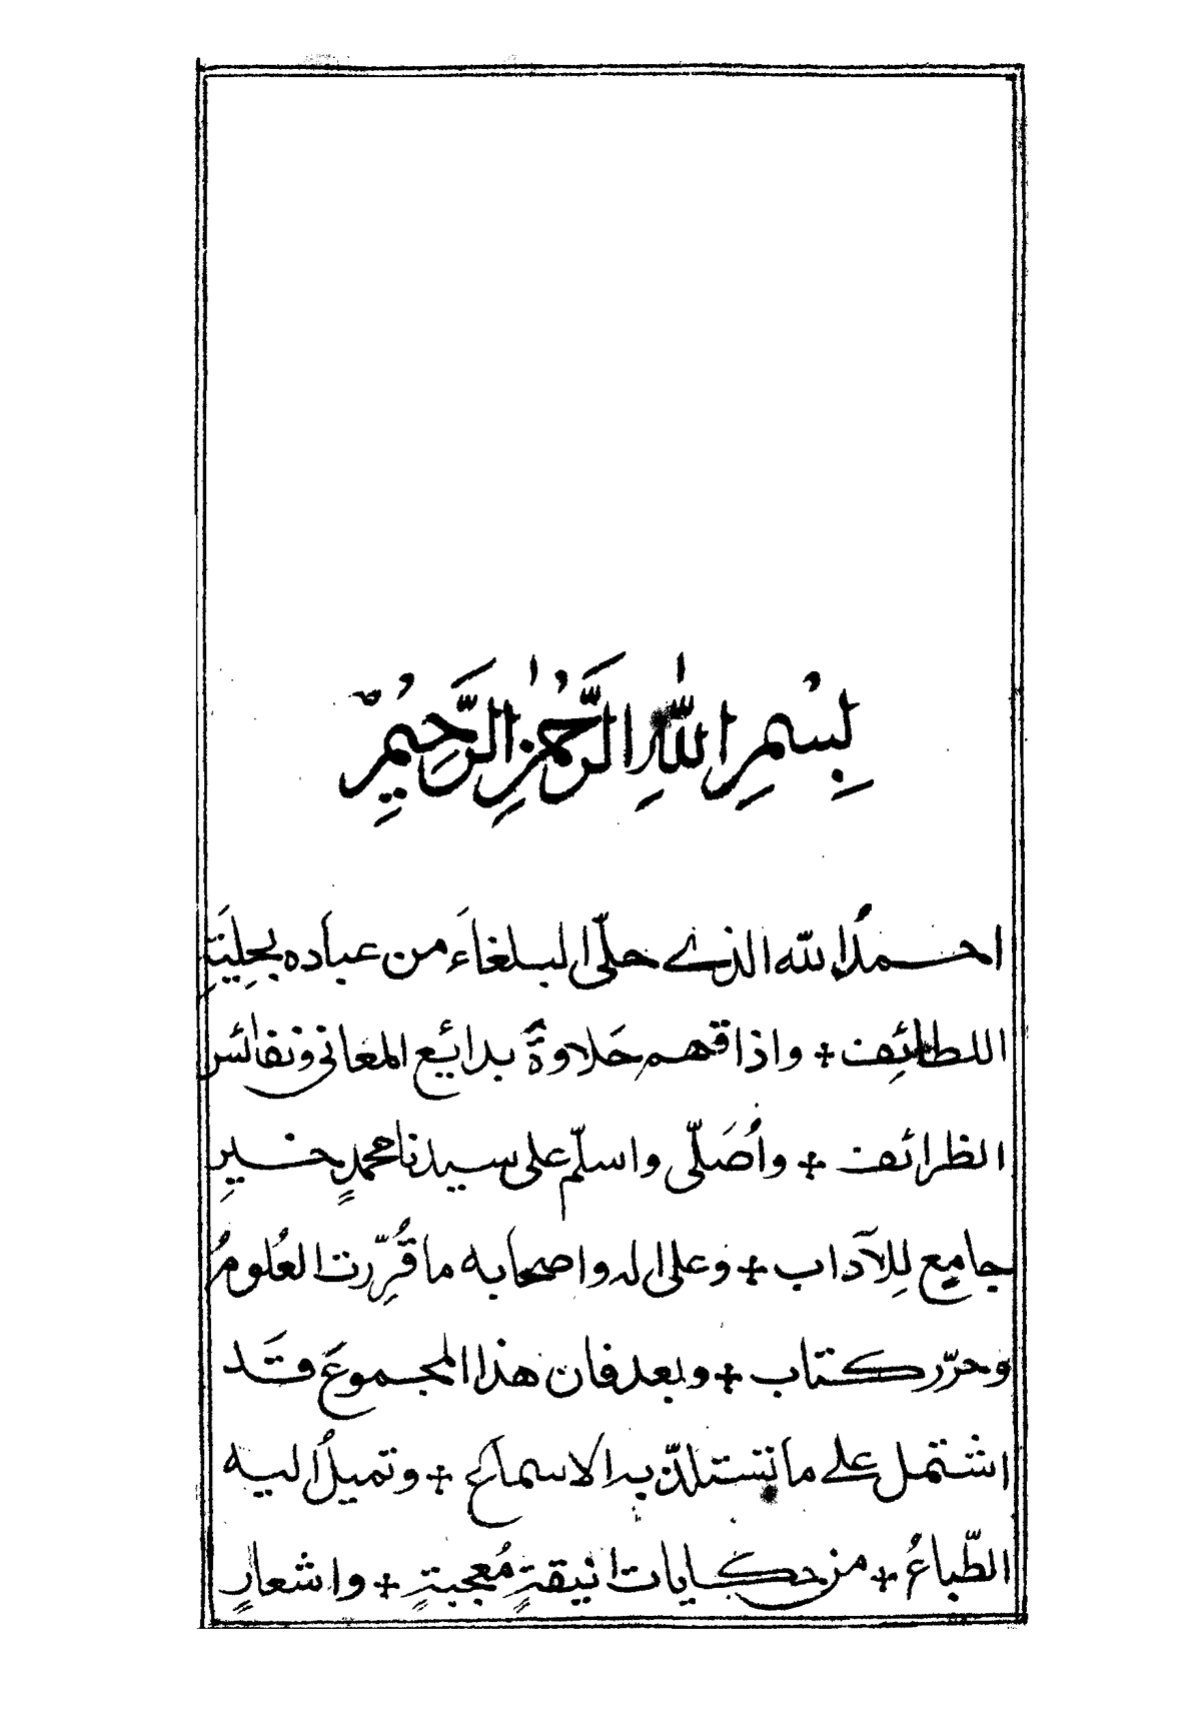 بِسْمِ اللّٰهِ الرَّحْمٰنِ الرَّحِيْمِ
احمدُ الله الذے حلّى البلغاءَ من عباده بحِليَةِ
اللطائِف + واذاقهم حَلاوةَ بدائع المعانى ونفائس
الظرائف + واُصَلّى واسلّم على سيدنا محمدٍ خيرِ
جامع لِلآداب + وعلى اله واصحابه ما قُرِّرت العُلومُ
وحرّر كتاب + وبعد فان هذا المجموعَ قَد
اشتمل علے ما تستلذّ به الاسماع + وتميلُ اليه
الطّباعُ + من حكايات انيقةٍ مُعجبةٍ + واشعارٍ